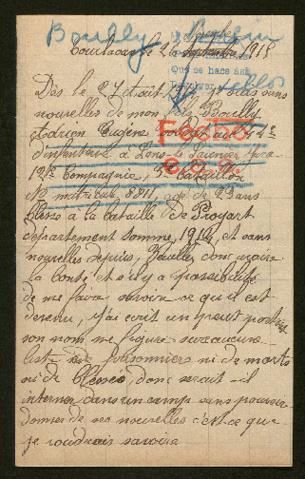 Bouilly Eugène
Courtacon le 26 Septembre 1918
Que se hace sin
Dès le 27 Août 1914 je suis sans
nouvelles de mon fils Bouilly
Adrien Eugène soldat au 44e
d'infanterie à Lons-le-Saunier Jura
12e Compagnie, 3e Bataillon
No matricule 8811, agé de 23 ans
Blessé à la bataille de Proyart
département Somme, 1914, et sans
nouvelles depuis, Veuillez donc avoir
la bonté, et s'il y a possibilité
de me faire savoir ce qu'il est
devenu, j'ai écrit un peu partout
son nom ne figure sur aucune
liste de prisonniers ni de morts
ni de blessés, donc serait-il
interner dans un camp sans pouvoir
donner de ses nouvelles c'est ce que
je voudrais savoir
Fecho